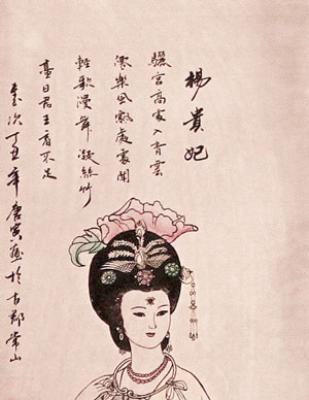 楊貴妃
驪宮高處入青雲
僊樂風飄處處聞
輕歌漫舞凝絲竹
盡日君王看不足
歲次丁丑年唐寅於古郡常山